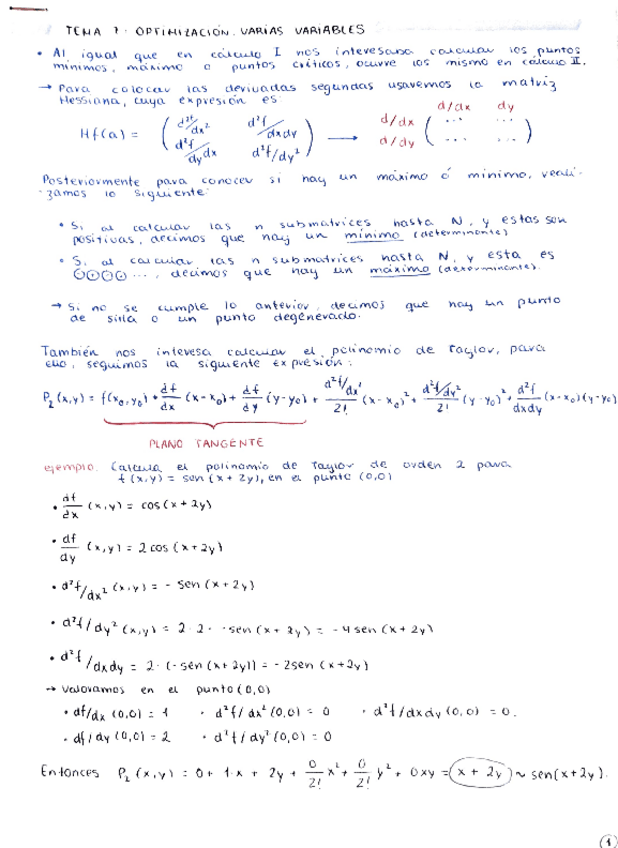 TEMA 7: OPTIMIZACIÓN. VARIAS VARIABLES
• Al igual que en cálculo I nos interesaba calcular los puntos
mínimos, máximo o puntos críticos, ocurre los mismo en cálculo II.
→ Para colocar las derivadas segundas usaremos la matriz
Hessiana, cuya expresión es:
d/dx dy
Hf(a) = ( d²f/dx² d²f/dxdy ) → d/dx ( ... ... )
( d²f/dydx d²f/dy² ) d/dy ( ... ... )
Posteriormente para conocer si hay un máximo ó mínimo, reali-
zamos lo siguiente:
• Si al calcular las n submatrices hasta N, y estas son
positivas, decimos que hay un mínimo (determinante)
• Si al calcular las n submatrices hasta N, y esta es
⊖⊕⊖⊕ ..., decimos que hay un máximo (determinante).
→ Si no se cumple lo anterior, decimos que hay un punto
de silla o un punto degenerado.
También nos interesa calcular el polinomio de Taylor, para
ello, seguimos la siguiente expresión:
P₂(x,y) = f(x₀,y₀) + df/dx (x-x₀) + df/dy (y-y₀) + d²f/dx²/2! (x-x₀)² + d²f/dy²/2! (y-y₀)² + d²f/dxdy (x-x₀)(y-y₀)
PLANO TANGENTE
ejemplo. Calcula el polinomio de Taylor de orden 2 para
f(x,y) = sen(x+2y), en el punto (0,0)
• df/dx (x,y) = cos(x+2y)
• df/dy (x,y) = 2cos(x+2y)
• d²f/dx² (x,y) = -sen(x+2y)
• d²f/dy² (x,y) = 2·2·-sen(x+2y) = -4sen(x+2y)
• d²f/dxdy = 2·(-sen(x+2y)) = -2sen(x+2y)
→ Valoramos en el punto (0,0)
• df/dx (0,0) = 1 • d²f/dx² (0,0) = 0 • d²f/dxdy (0,0) = 0.
• df/dy (0,0) = 2 • d²f/dy² (0,0) = 0
Entonces P₂(x,y) = 0 + 1·x + 2y + 0/2! x² + 0/2! y² + 0xy = x + 2y ~ sen(x+2y).
1